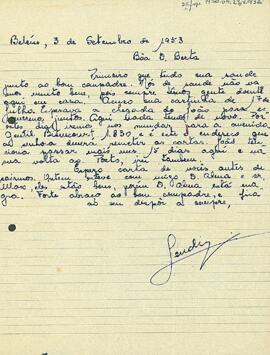 Belém, 3 de Setembro de 1953
Bôa D. Berta
Primeiro que tudo sua saúde
junto ao bom compadre. Nós de saúde não va
mos muito bem, pois sempre temos gente doente
aqui em casa. Acuso sua cartinha de 17 de
Julho esperava a chegada do João para es-
crevermos juntos. Aqui nada temos de novo. Por
estes dias iremos nos mudar para a avenida
Gentil Bittencourt 1830 e é este o endereço que
a senhora deverá remeter as cartas João ten-
ciona passar mais uns 15 dias aqui e na
sua volta ao Porto, irei tambem.
Espero carta de voceis, antes de
sairmos. Ontem estive com meus D. Alma e
Max, eles estão bem, porem D. Alma está ma
gra. Forte abraço ao bom compadre, e fica
ao seu dispôr a sempre,